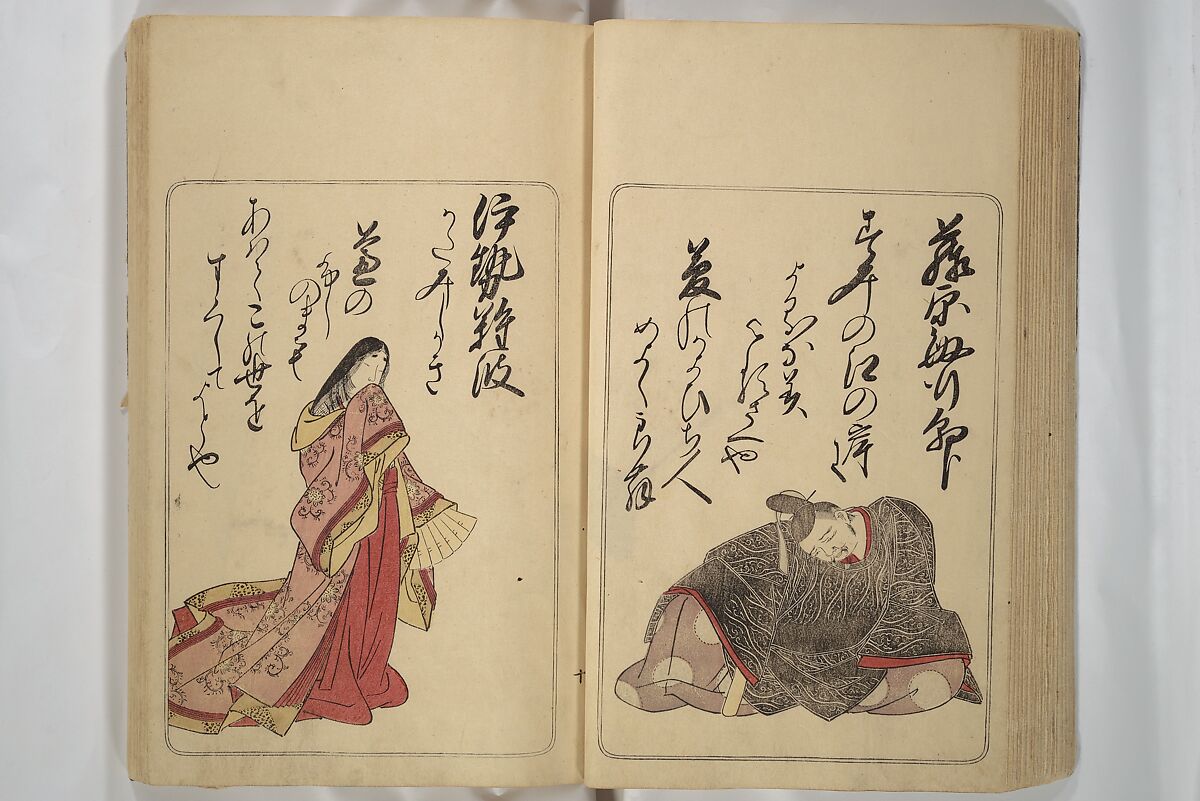 藤原敏行朝臣
すみの江の岸に
よるなみ
よるさへや
夢のかよひち人
めよくらむ
伊勢難波
かたみしかき
蘆の
ふし
のまも
あはてこの世を
すくしてよとや
十